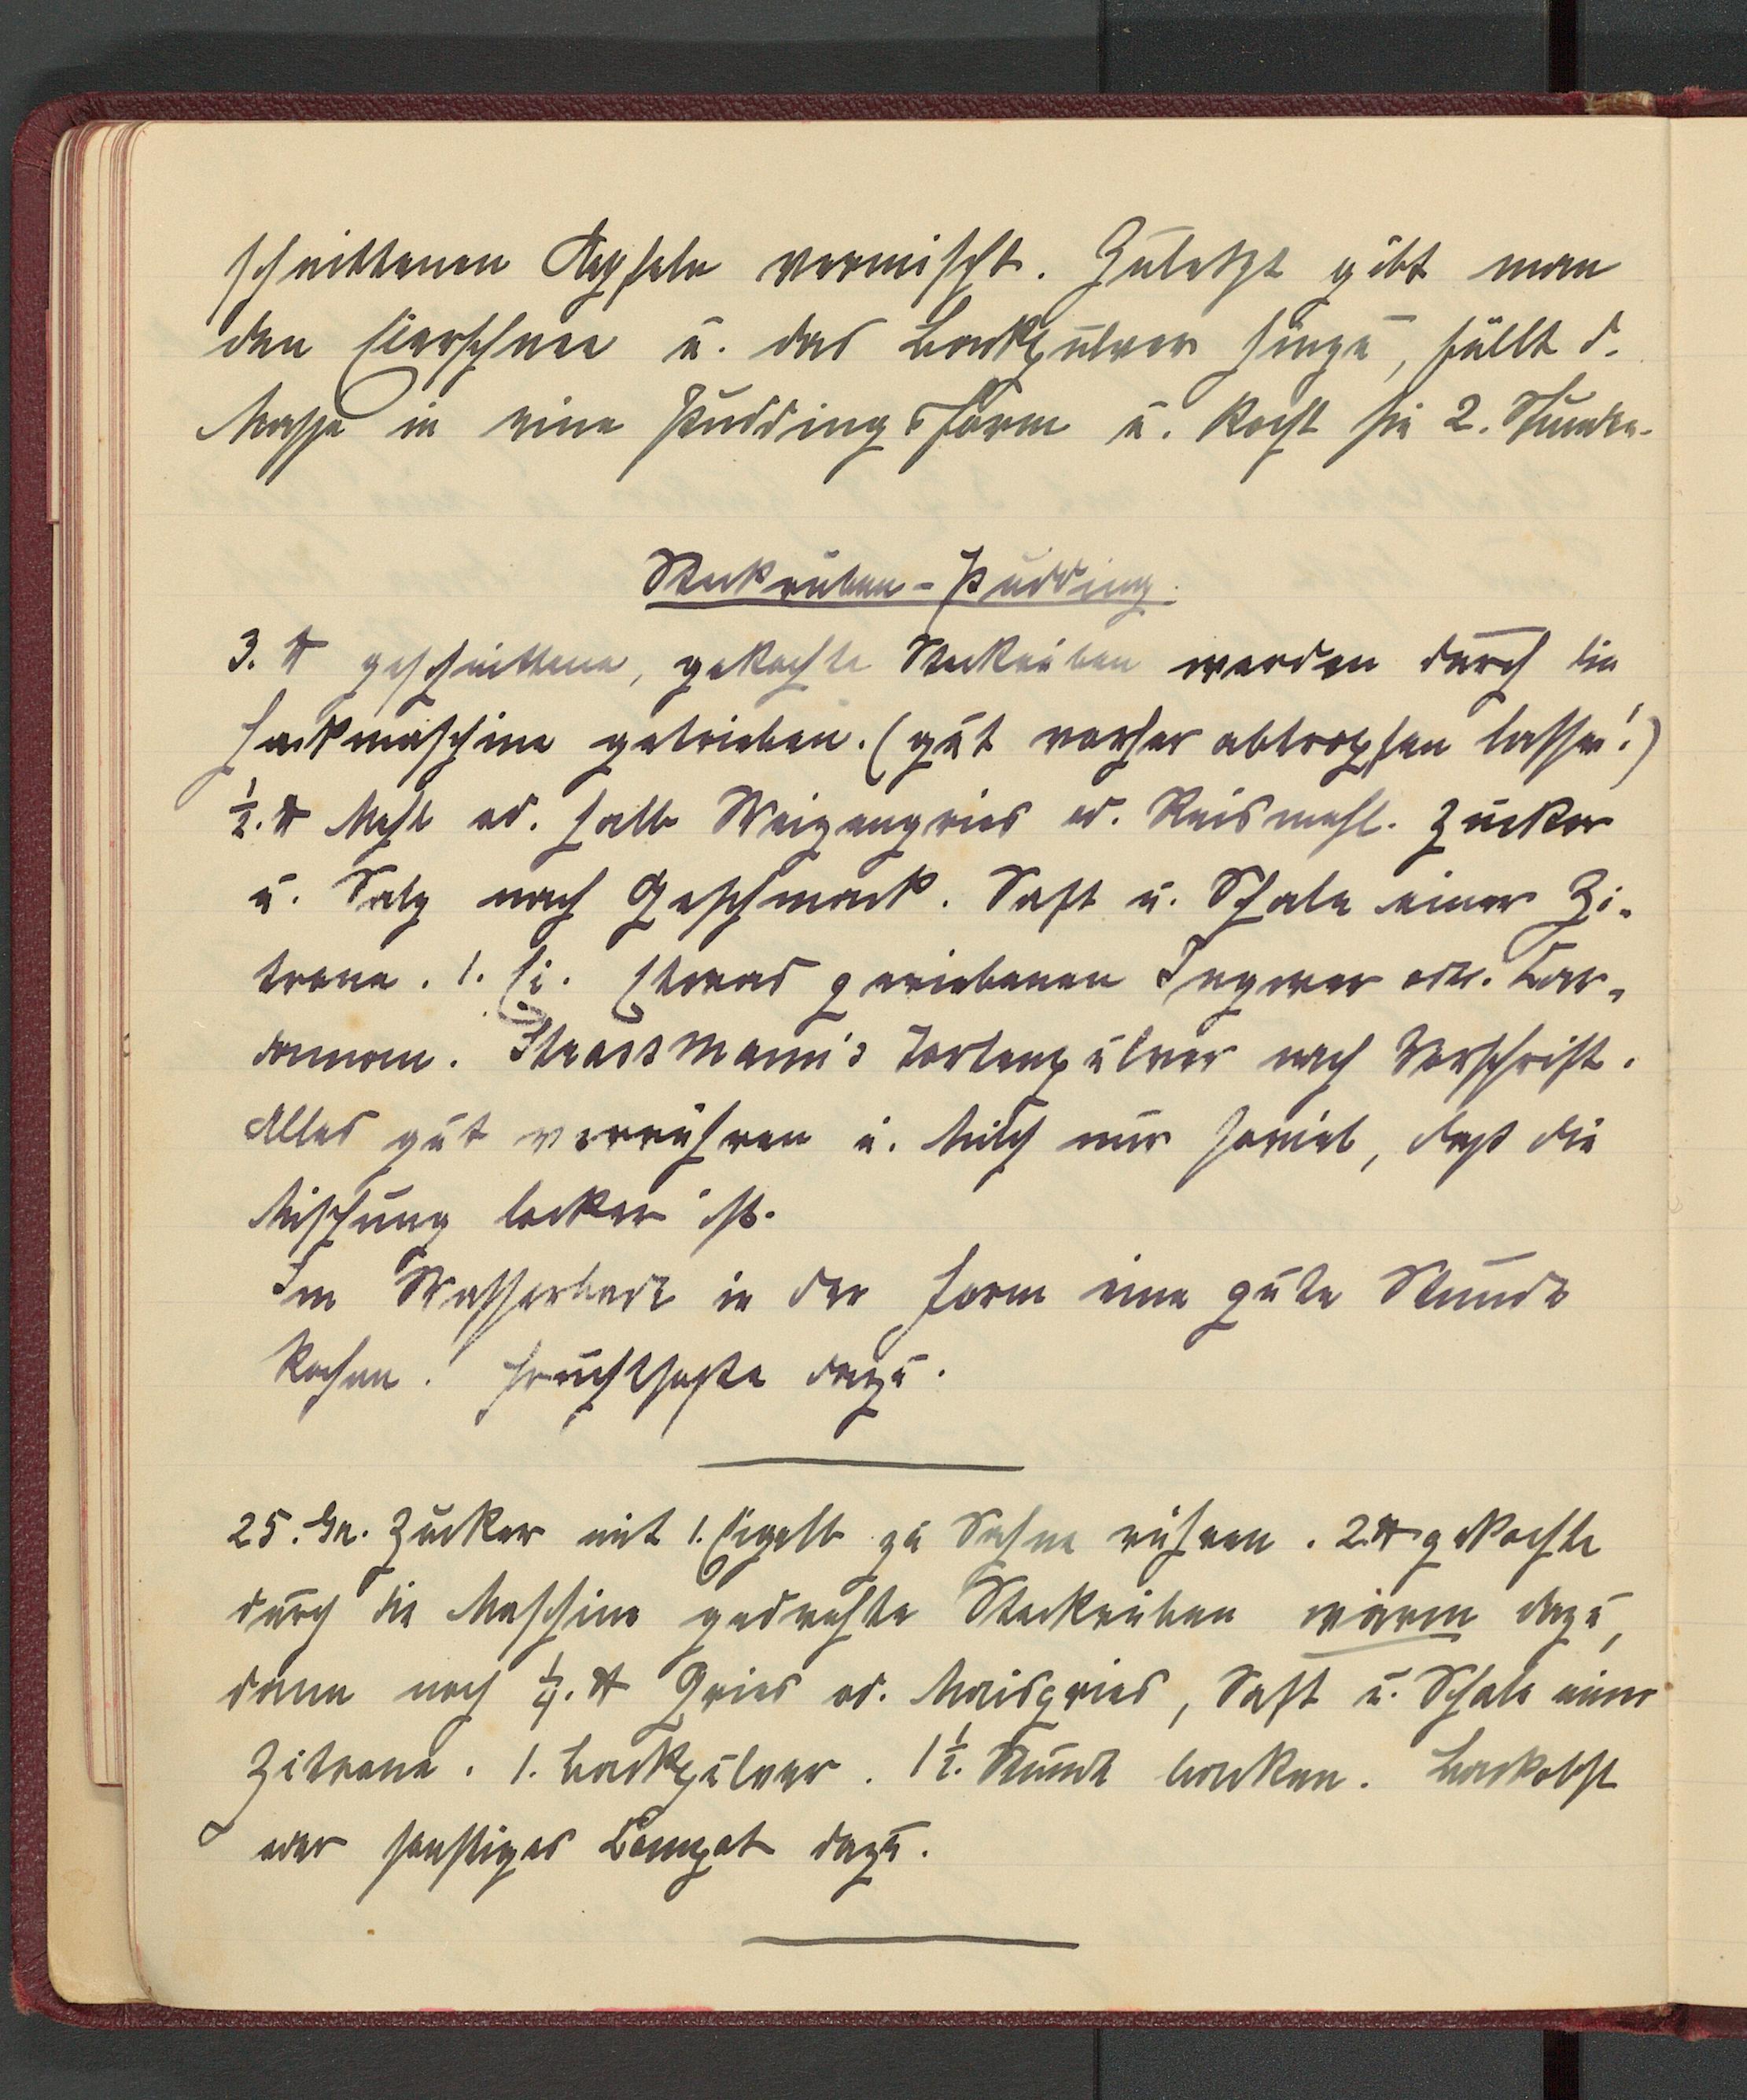 schnittenen Aepfeln vermischt. Zuletzt gibt man
den Eierschnee u. das Backpulver hinzu, füllt d.
Masse in eine Puddingsform u. kocht sie 2. Stunden.
Steckrüben-Pudding.
3. ℔ geschnittene, gekochte Steckrüben werden durch die
Hackmaschine getrieben. (gut vorher abtropfen lassen!)
½. ℔ Mehl od. halb Weizengries od. Reismehl. Zucker
u. Salz nach Geschmack. Saft u. Schale einer Zi-
trone. 1. Ei. Etwas geriebenen Ingwer oder. Car-
damom. Strassmann's Tortenpulver nach Vorschrift.
Alles gut verrühren u. Milch nur soviel, daß die
Mischung locker ist.
Im Wasserbade in der Form eine gute Stunde
kochen! Fruchtsoße dazu.
25. Gr. Zucker mit 1. Eigelb zu Sahne rühren. 2. ℔ gekochte
durch die Maschine gedrehte Steckrüben warm dazu,
dann noch ¼. ℔ Gries od. Maisgries, Saft u. Schale einer
Zitrone. 1. Backpulver. 1½. Stunde backen. Backobst
oder sonstiges Compot dazu.